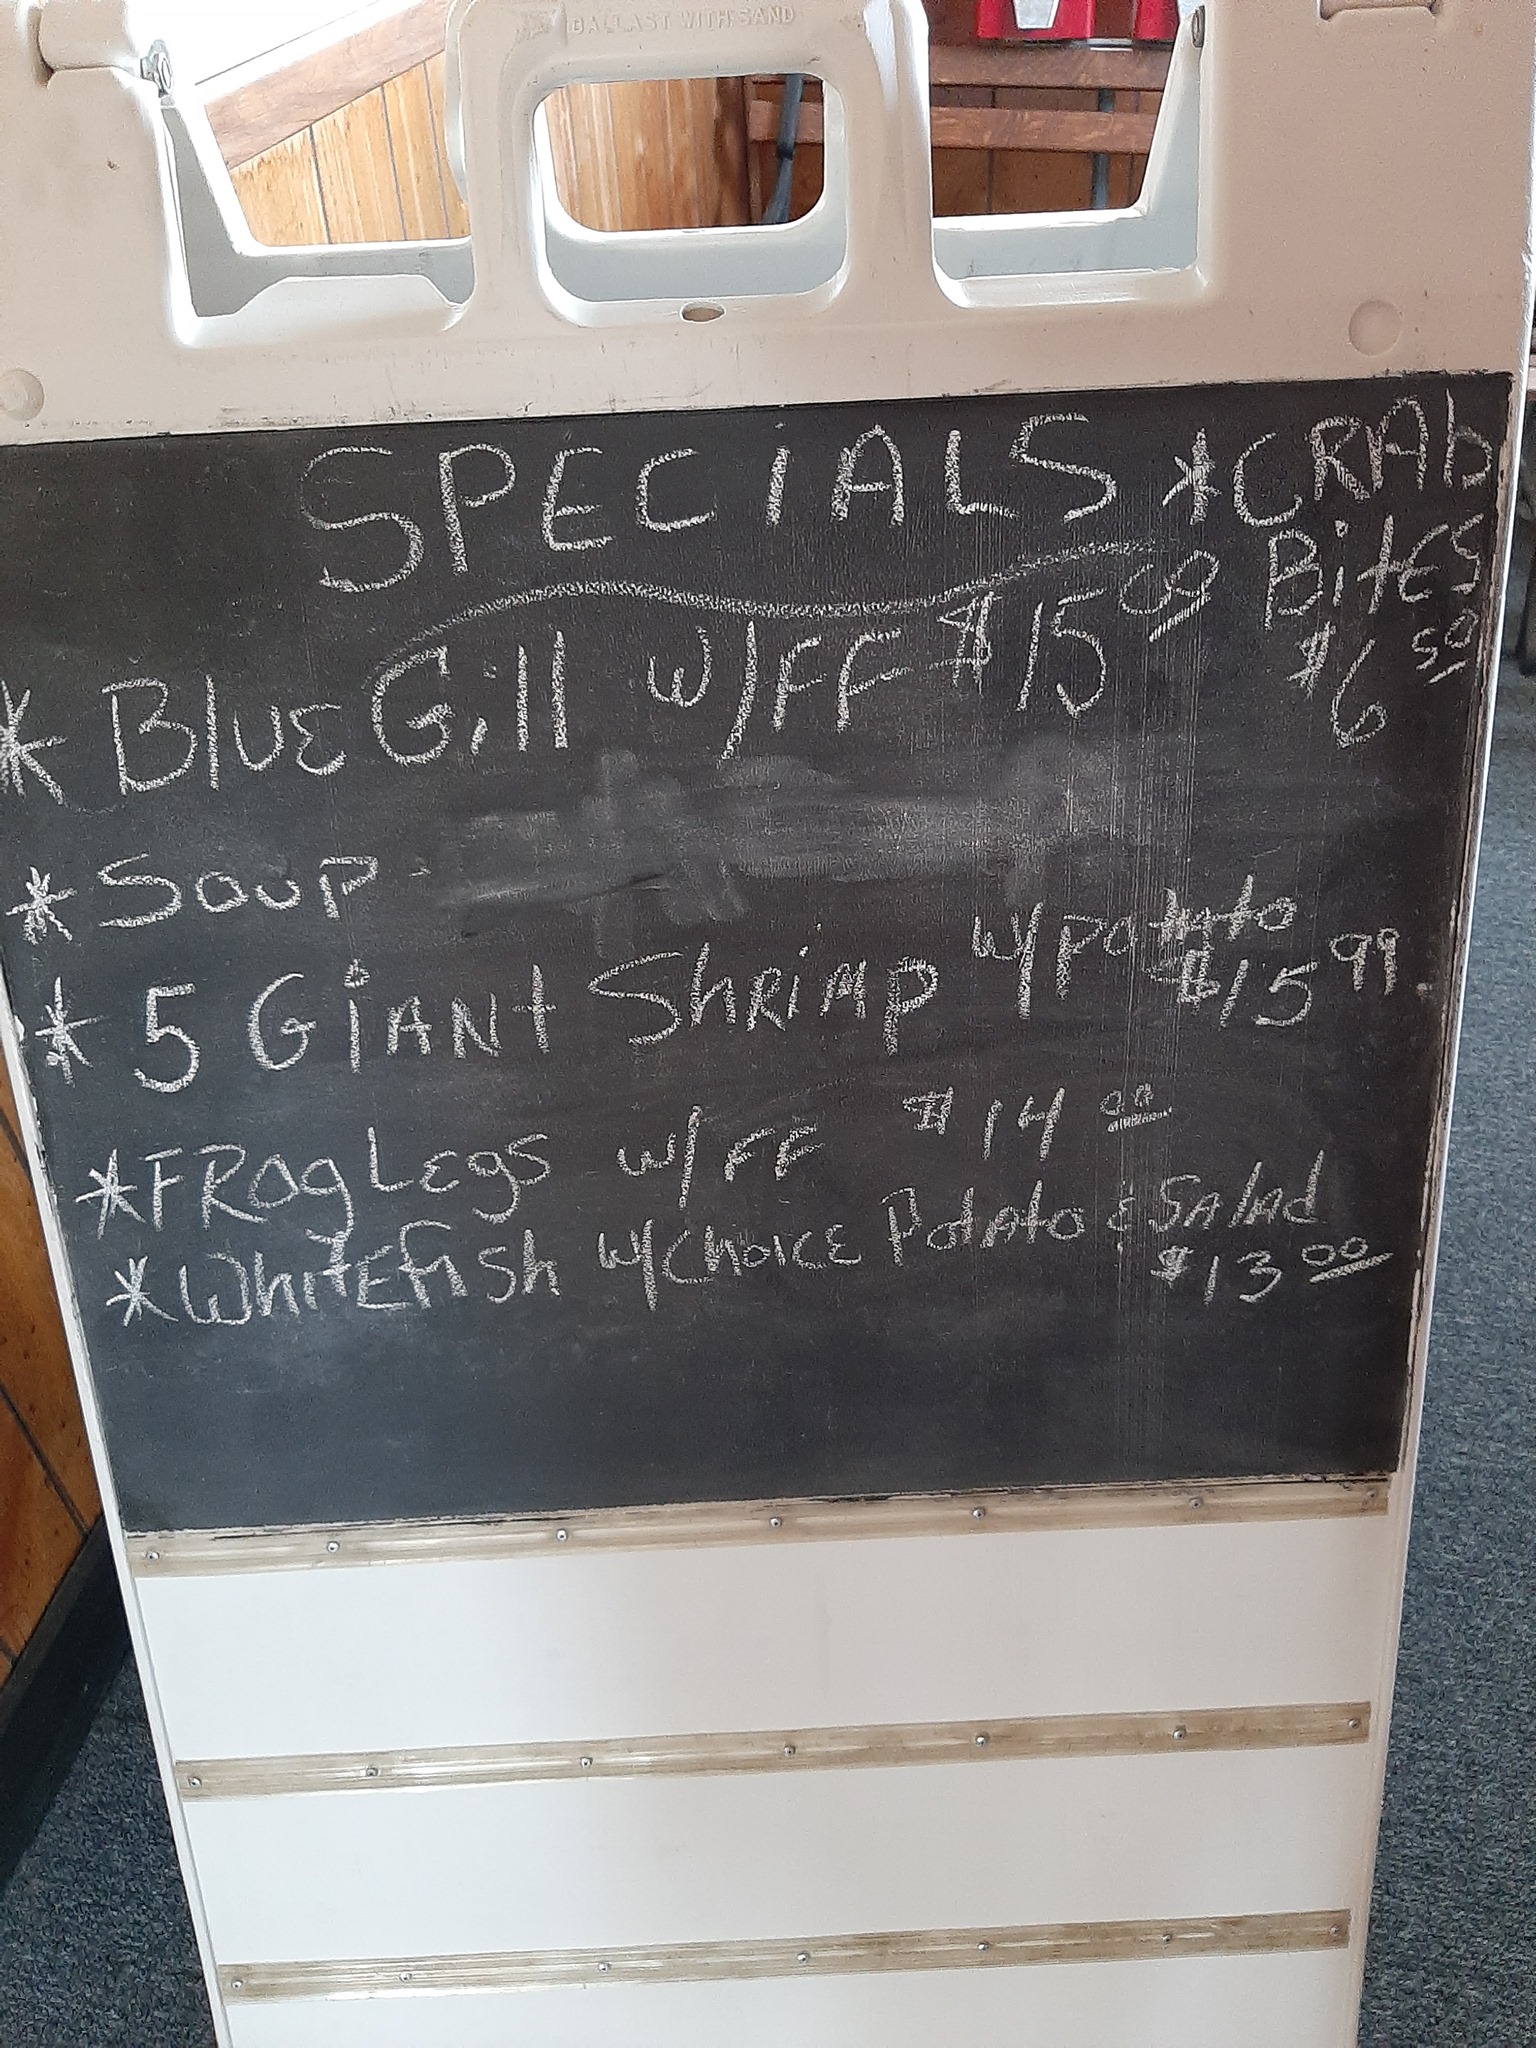 BALLAST WITH SAND
SPECiALS
* CRAb
BitES
$6 50
* BluE Gill w/FF $15 00
* Soup -
* 5 GiANt ShRimp w/potato
$15 99
* FROg LEgS w/FF $14 00
* WhitEfiSh w/ChoicE Potato & SAlad
$13 00